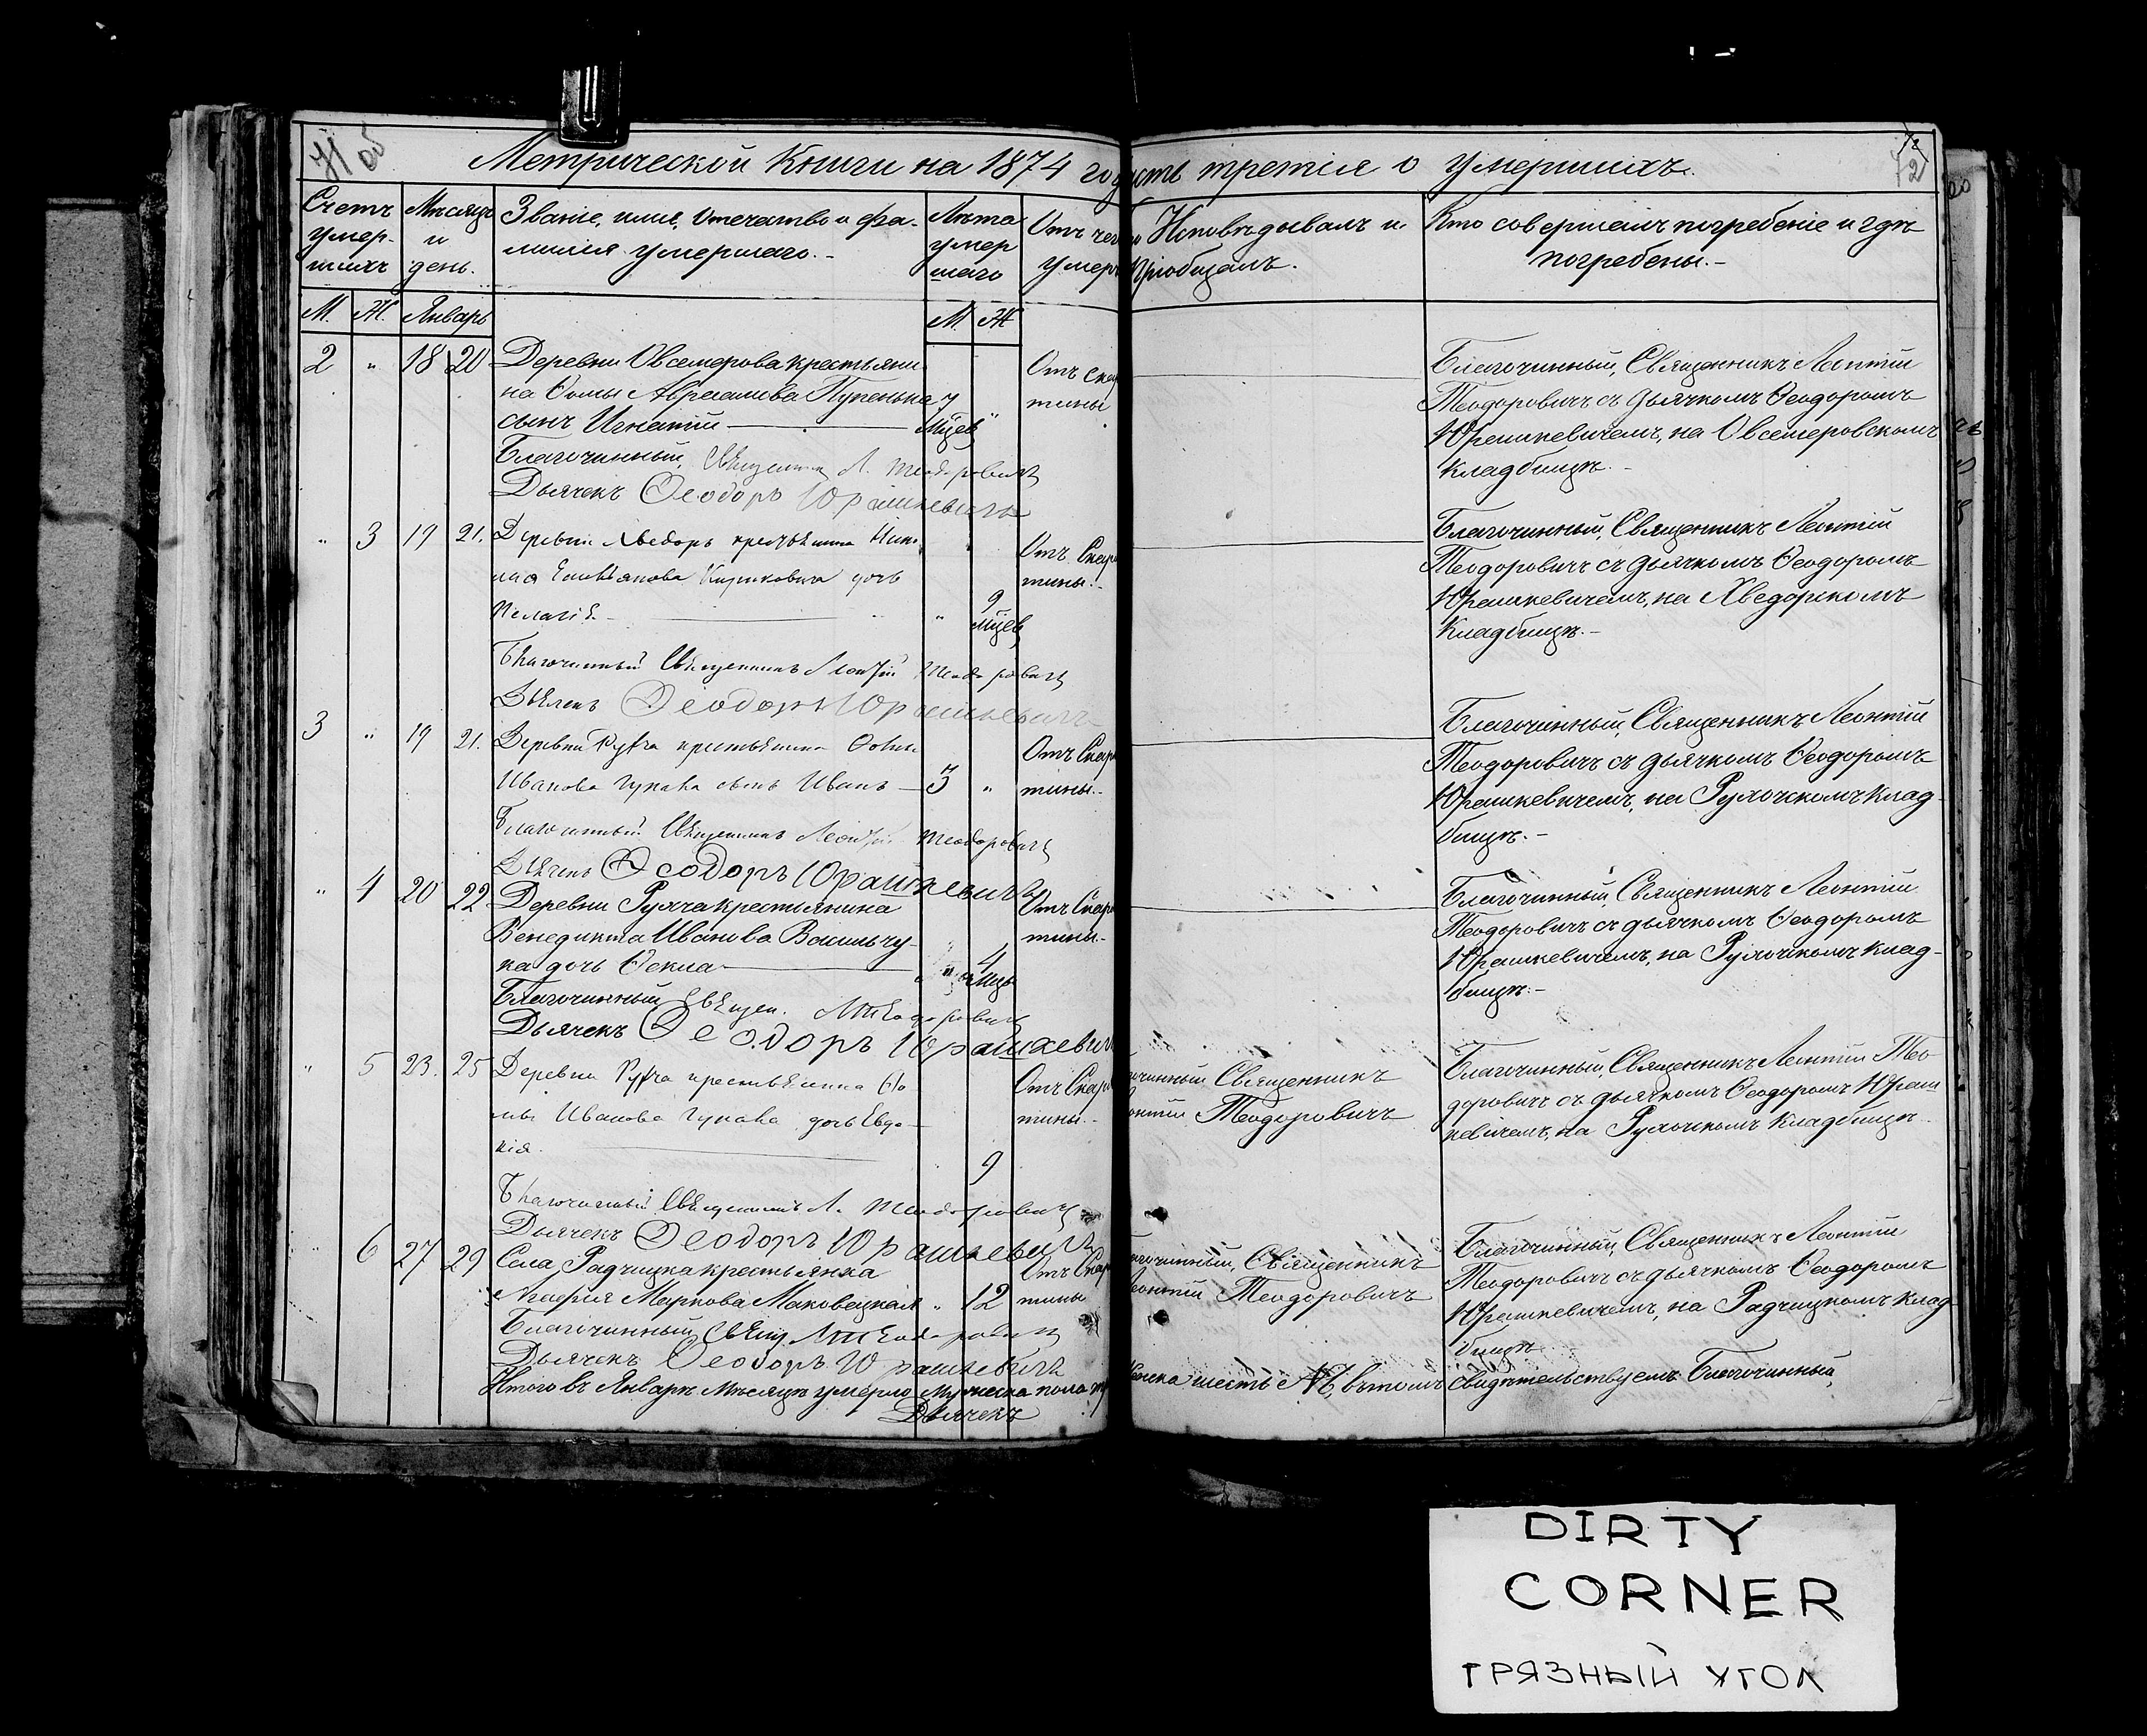 71 об
72
Метрической Книги на 1874 го
асть третія о умершихъ.
Счетъ умер-шихъ
Мѣсяцъ и день.
Званіе, имя, отечество и фа-
милія умершаго.-
Лѣта умер шаго
Отъ чего
умеръ
Исповѣдывалъ и
пріобщалъ.
Кто совершалъ погребеніе и гдѣ
погребены.-
М. Ж. Январь
М. Ж
2 " 18 20 Деревни Овсемерова крестьяни
на Ѳомы Авраамова Пупенька 7
сынъ Игнатій мцев "
Отъ скар
тины
Благочинный, Священникъ Л. Теодоровичъ
Дьячекъ Ѳеодоръ Юрашкевичъ
Благочинный, Священникъ Леонтій
Теодоровичъ съ дьячкомъ Ѳеодоромъ
Юрашкевичемъ, на Овсемеровскомъ
кладбищѣ.-
" 3 19 21. Деревни Хведоръ крестьянина Ник
лая Кириковича дочь
Пелагія " 9 мцев
Отъ Скар
тины.-
Благочинный Священникъ Леонтій Теодоровичъ
Дьячекъ Ѳеодоръ Юрашкевичъ
Благочинный, Священникъ Леонтій
Теодоровичъ съ дьячкомъ Ѳеодоромъ
Юрашкевичемъ, на Хведорскомъ
Кладбищѣ.-
3 " 19 21. Деревни Рухча крестьянина Ѳомы
Иванова Гукака сынъ Иванъ 3 "
Отъ Скар
тины.-
Благочинный Священникъ Леонтій Теодоровичъ
Дьячекъ Ѳеодоръ Юрашкевичъ
Благочинный, Священникъ Леонтій
Теодоровичъ съ дьячкомъ Ѳеодоромъ
Юрашкевичемъ, на Рухочскомъ клад-
бищѣ.-
" 4 20 22 Деревни Рухча крестьянина
Венедикта Иванова Васильчу-
ка дочь Ѳекла " 4 мца
Отъ Скар
тины.-
Благочинный Священ. Л Теодоровичъ
Дьячекъ Ѳеодоръ Юрашкевич
Благочинный, Священникъ Леонтій
Теодоровичъ съ дьячкомъ Ѳеодоромъ
Юрашкевичемъ, на Рухочскомъ клад-
бищѣ.-
" 5 23. 25 Деревни Рухча крестьянина Ѳо
мы Иванова Гукака дочь Евдо-
кія. 9
Отъ Скар
тины.-
очинный Священникъ
онтій Теодоровичъ
Благочинный Священникъ Л. Теодоровичъ
Дьячекъ Ѳеодоръ Юрашкевичъ
Благочинный, Священникъ Леонтій Тео
доровичъ съ дьячкомъ Ѳеодоромъ Юраш
кевичемъ, на Рухочскомъ кладбищѣ.
" 6 27 29 Села Радчицка крестьянка
Агафія Маркова Маковецкая " 12
Отъ Скар
тины
агочинный, Священникъ
Леонтій Теодоровичъ
Благочинный Свящ Л Теодоровичъ
Дьячекъ Ѳеодоръ Юрашкевичъ
Благочинный, Священникъ Леонтій
Теодоровичъ съ дьячкомъ Ѳеодоромъ
Юрашкевичемъ, на Радчицкомъ клад
бищѣ
Итого въ Январѣ мѣсяцѣ умерло Мужеска пола
женска шесть № 6, въ томъ свидѣтельствуемъ Благочинный,
Дьячекъ
DIRTY
CORNER
ГРЯЗНЫЙ УГОЛ